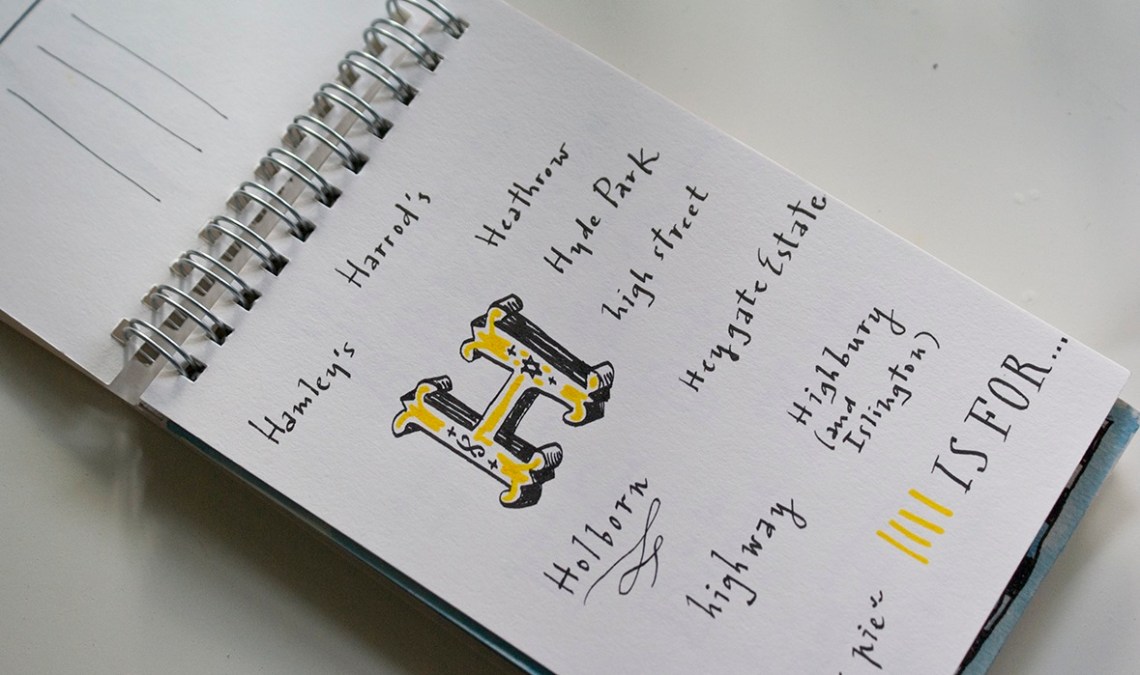 Hamley's
Harrod's
Heathrow
Hyde Park
high street
H
Heygate Estate
Highbury
(and
Islington)
Holborn
highway
IS FOR...